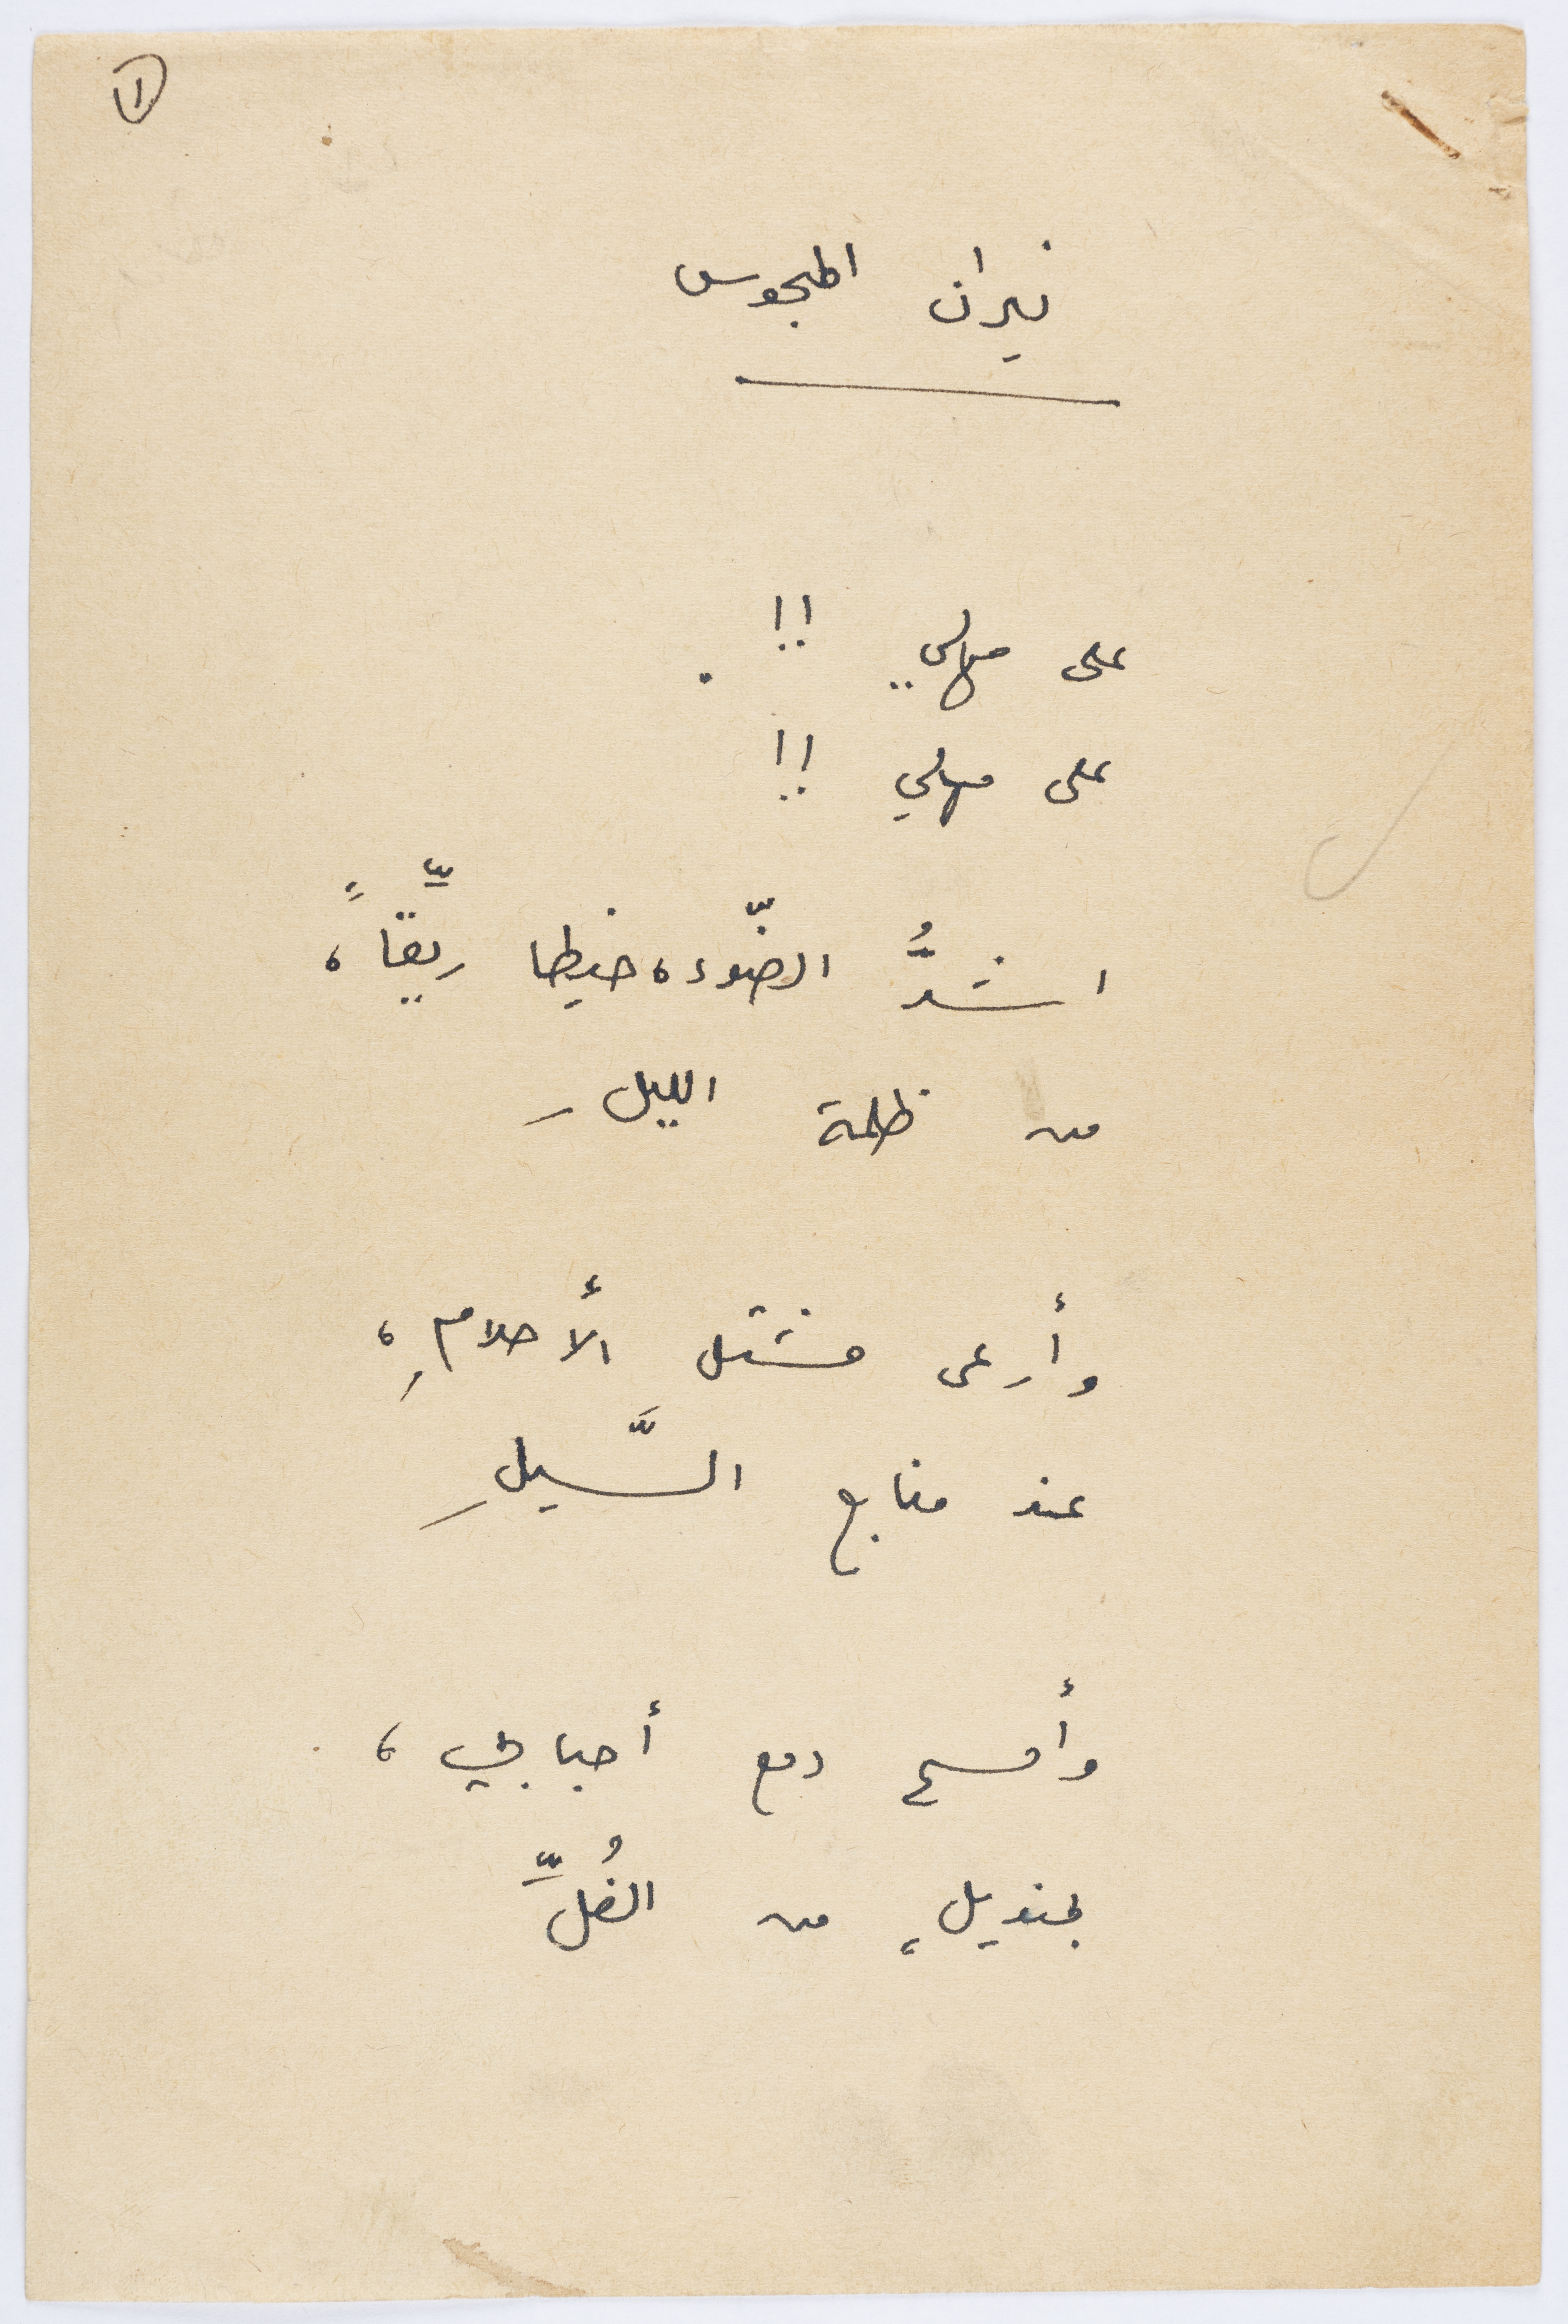 ١
نيران المجوس
على مهلي !!
على مهلي !!
اشدُّ الضّوء، خيطا ريِّقاً،
من ظلمة الليلِ
وأرعى مشتل الأحلامِ،
عند منابع السَّيلِ
وأمسح دمع أحبابي،
بمنديلٍ من الفُلِّ